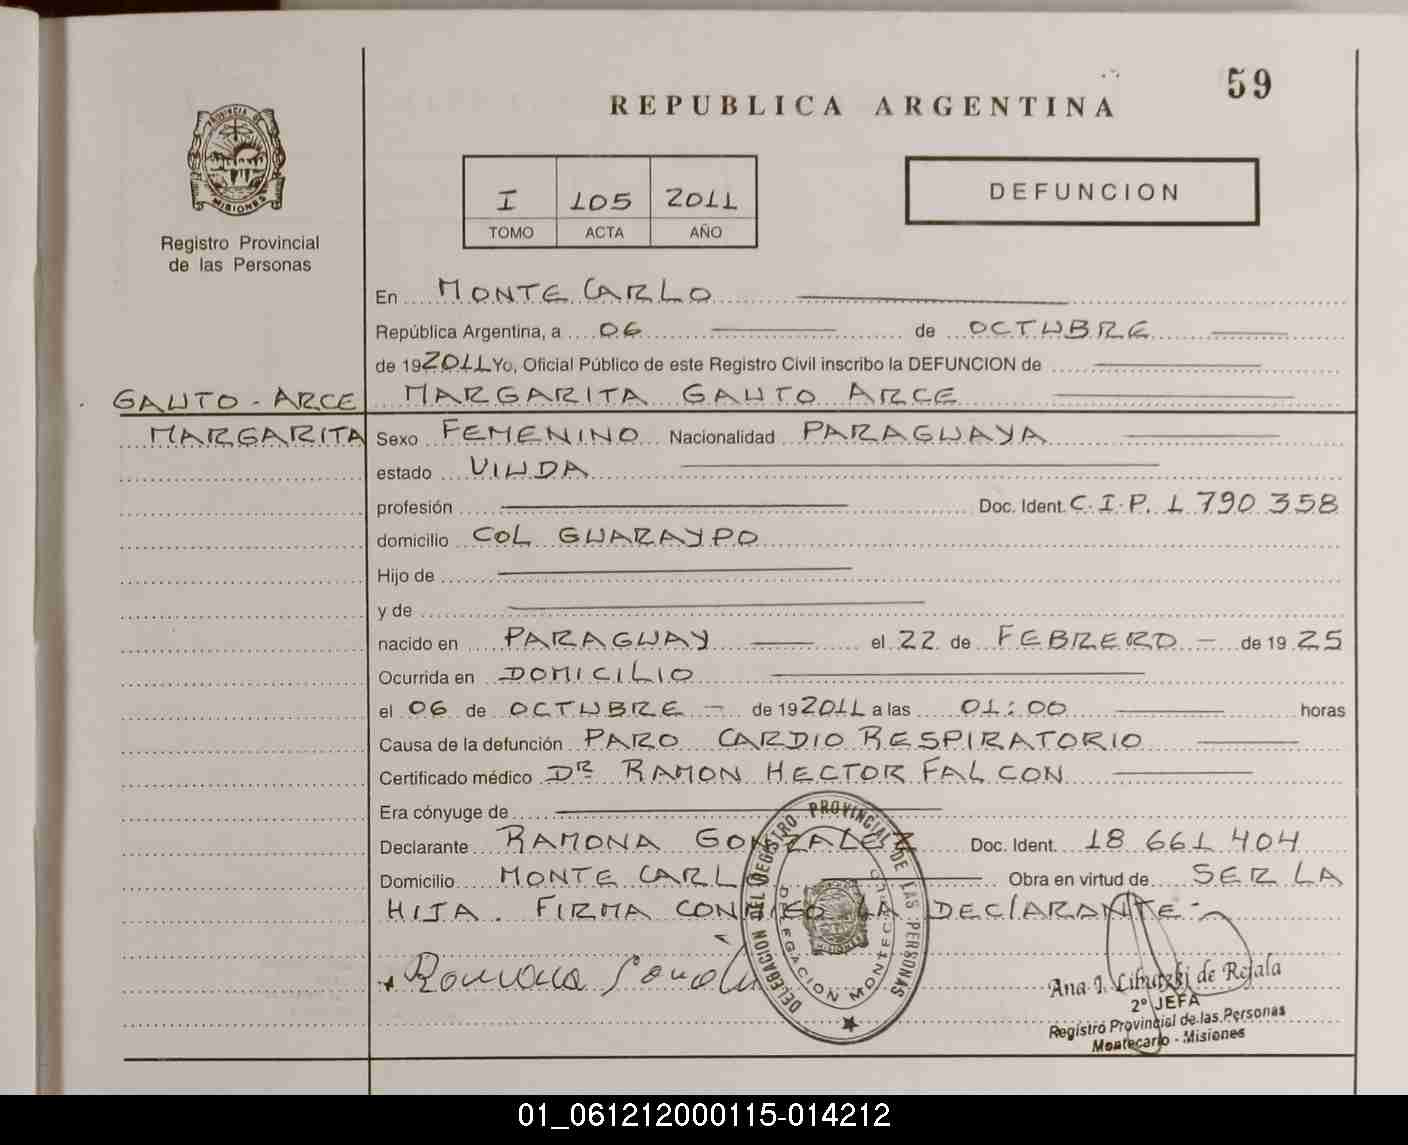 59
REPUBLICA ARGENTINA
PROVINCIA DE
MISIONES
Registro Provincial
de las Personas
I 105 2011
TOMO ACTA AÑO
DEFUNCION
En MONTE CARLO
República Argentina, a 06 de OCTUBRE
de 192011 Yo, Oficial Público de este Registro Civil inscribo la DEFUNCION de
GAUTO - ARCE MARGARITA GAUTO ARCE
MARGARITA Sexo FEMENINO Nacionalidad PARAGUAYA
estado VIUDA
profesión Doc. Ident. C.I.P. 1 790 358
domicilio COL GUARAYPO
Hijo de
y de
nacido en PARAGUAY el 22 de FEBRERO - de 19 25
Ocurrida en DOMICILIO
el 06 de OCTUBRE - de 192011 a las 01:00 horas
Causa de la defunción PARO CARDIO RESPIRATORIO
Certificado médico DR RAMON HECTOR FALCON
Era cónyuge de
Declarante RAMONA GONZALEZ Doc. Ident. 18 661 404
Domicilio MONTE CARLO Obra en virtud de SER LA
HIJA. FIRMA CONMIGO LA DECLARANTE.-
DELEGACION DEL REGISTRO PROVINCIAL DE LAS PERSONAS
DELEGACION MONTECARLO
MISIONES
Ramona
Ana I. de Rojala
2º JEFA
Registro Provincial de las Personas
Montecarlo - Misiones
01_061212000115-014212